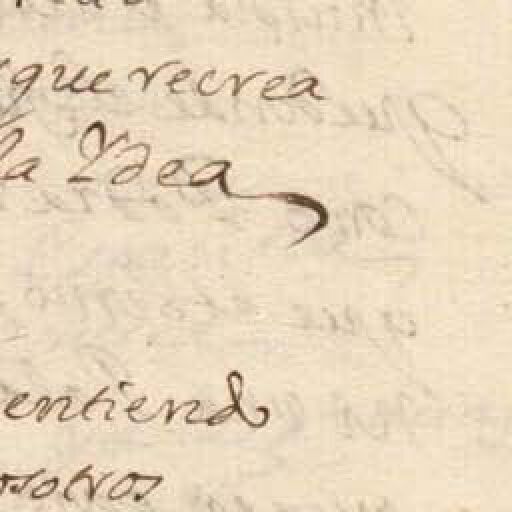 que recrea
la Ydea
entiendo
osotros